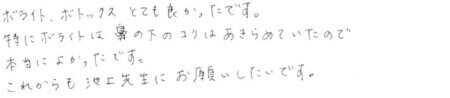 ボライト、ボトックス とても良かったです。
特にボライトは 鼻の下のコリはあきらめていたので
本当によかったです。
これからも 池上先生に お願いしたいです。